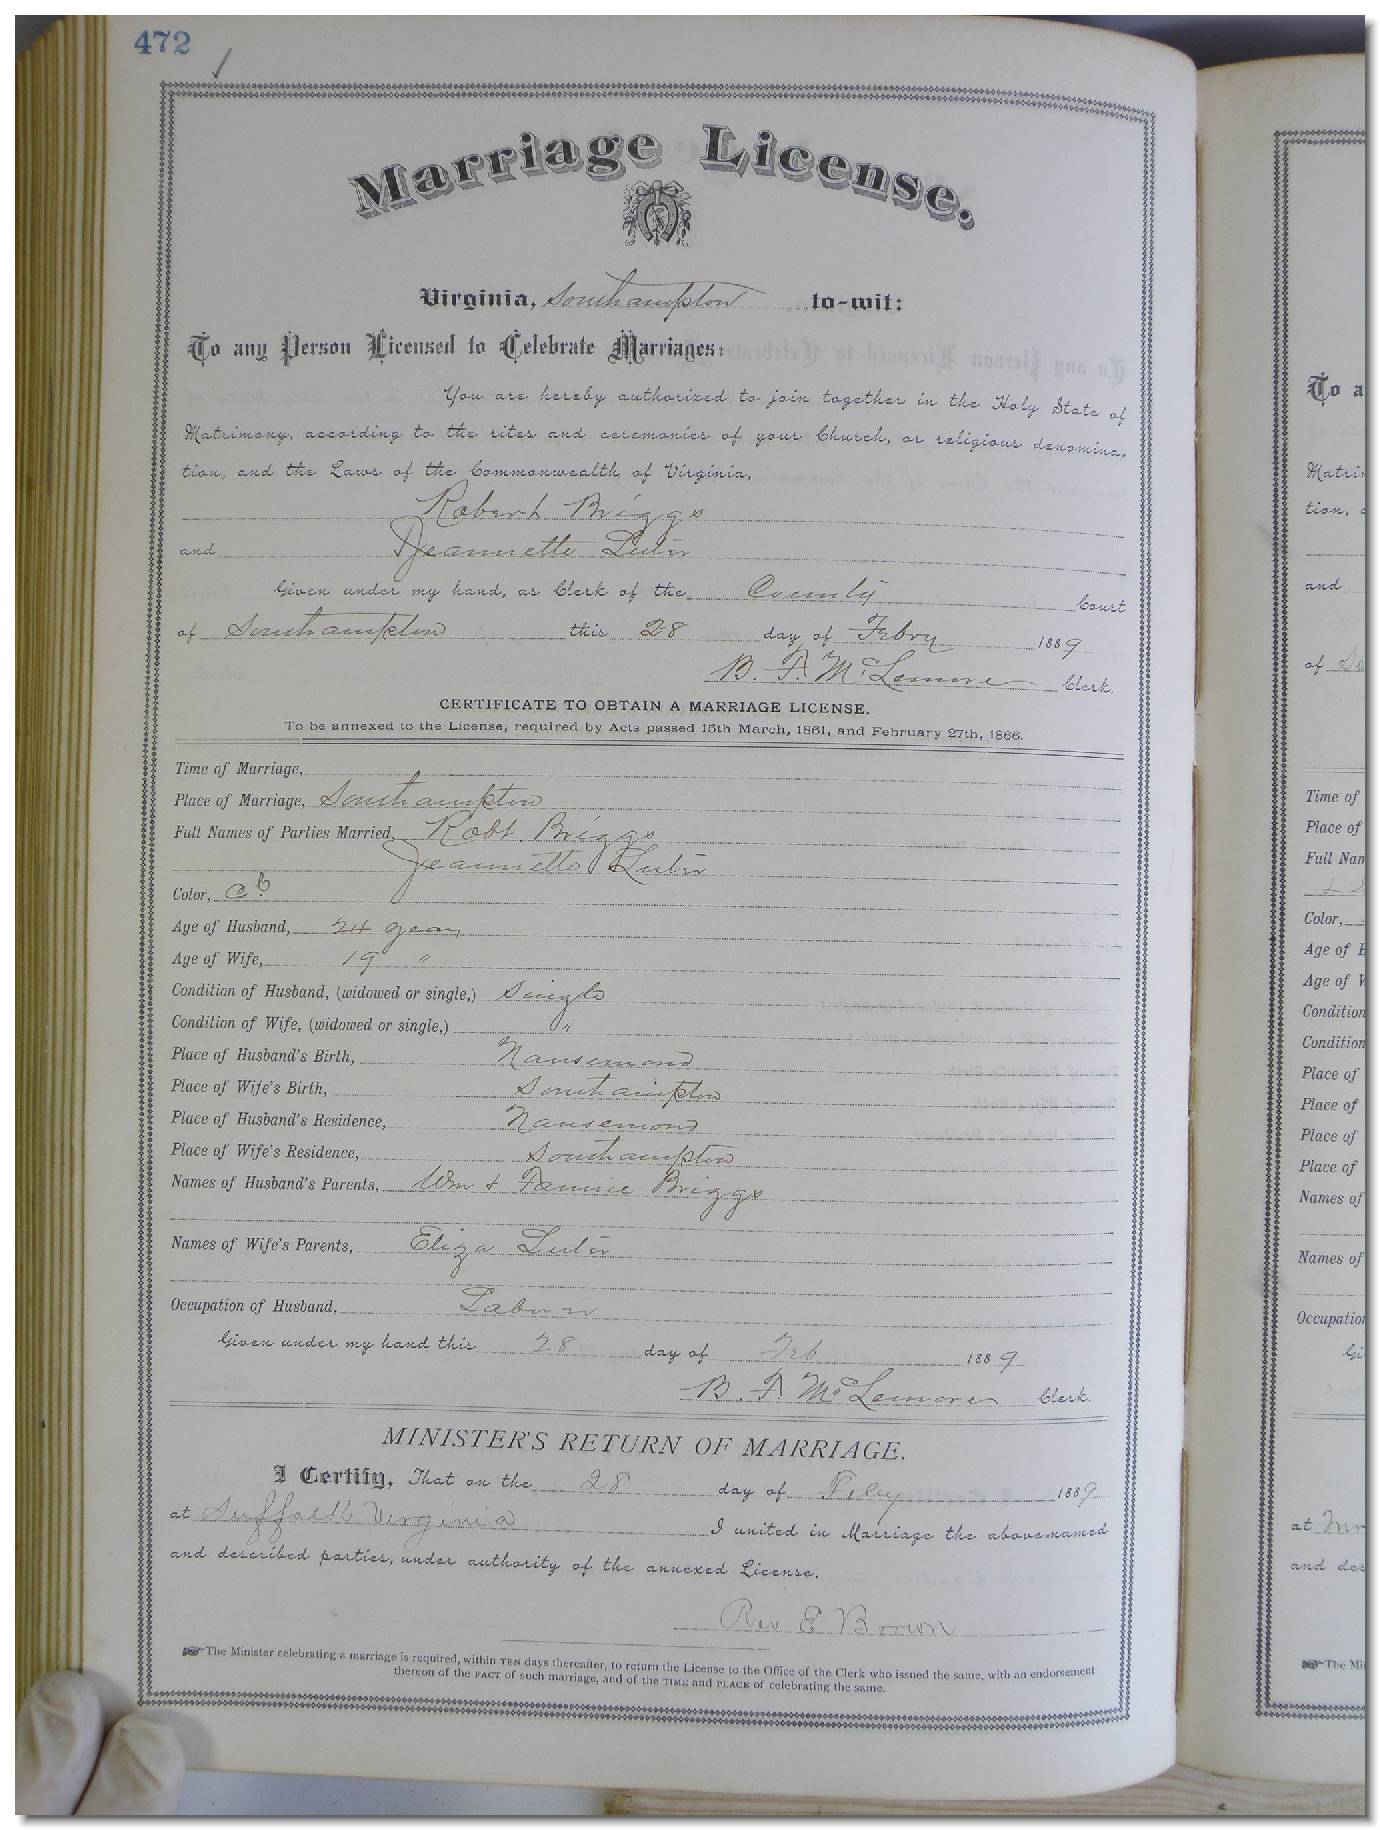 472
Marriage License.
Virginia, Southampton to-wit:
To any Person Licensed to Celebrate Marriages:
You are hereby authorized to join together in the Holy State of
Matrimony, according to the rites and ceremonies of your Church, or religious denomina-
tion, and the Laws of the Commonwealth of Virginia,
Robert Briggs
and Jeannette
Given under my hand, as Clerk of the County Court
of Southampton this 28 day of Febry 1889
B. F. McLemore Clerk.
CERTIFICATE TO OBTAIN A MARRIAGE LICENSE.
To be annexed to the License, required by Acts passed 15th March, 1861, and February 27th, 1866.
Time of Marriage,
Place of Marriage, Southampton
Full Names of Parties Married, Robt Briggs
Jeannette
Color,
Age of Husband, 24 years
Age of Wife, 19 "
Condition of Husband, (widowed or single,) Single
Condition of Wife, (widowed or single,) "
Place of Husband's Birth, Nansemond
Place of Wife's Birth, Southampton
Place of Husband's Residence, Nansemond
Place of Wife's Residence, Southampton
Names of Husband's Parents, Wm + Fannie Briggs
Names of Wife's Parents, Eliza
Occupation of Husband,
Given under my hand this 28 day of Feb 1889
B. F. McLemore Clerk.
MINISTER'S RETURN OF MARRIAGE.
I Certify, That on the 28 day of Feby 1889
at Suffolk Virginia I united in Marriage the above-named
and described parties, under authority of the annexed License.
Rev E Brown
The Minister celebrating a marriage is required, within TEN days thereafter, to return the License to the Office of the Clerk who issued the same, with an endorsement
thereon of the FACT of such marriage, and of the TIME and PLACE of celebrating the same.
To a
Matri
tion,
and
of
Time of
Place of
Full Nan
Color,
Age of H
Age of W
Condition
Condition
Place of
Place of
Place of
Place of
Names of
Names of
Occupation
Gi
at
and des
The Mi